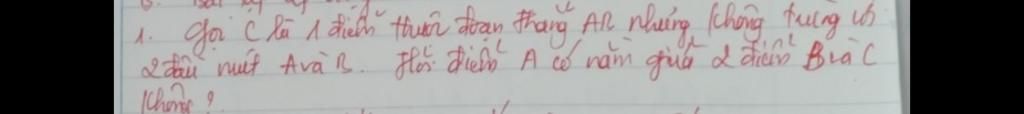 1. Gọi C là 1 điểm thuộc đoạn thẳng AB nhưng không trùng với
2 đầu mút A và B. Hỏi điểm A có nằm giữa 2 điểm B và C
không?